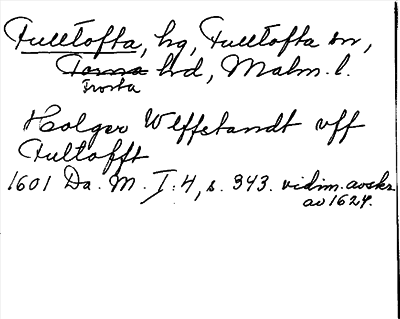 Fulltofta, hg, Fulltofta sn,
Torna hd, Malm. l.
Frosta
Holger Wlffstandt vff
Fultofft
1601 Da. M. I:4, s. 343. vidim. avskr.
av 1624.